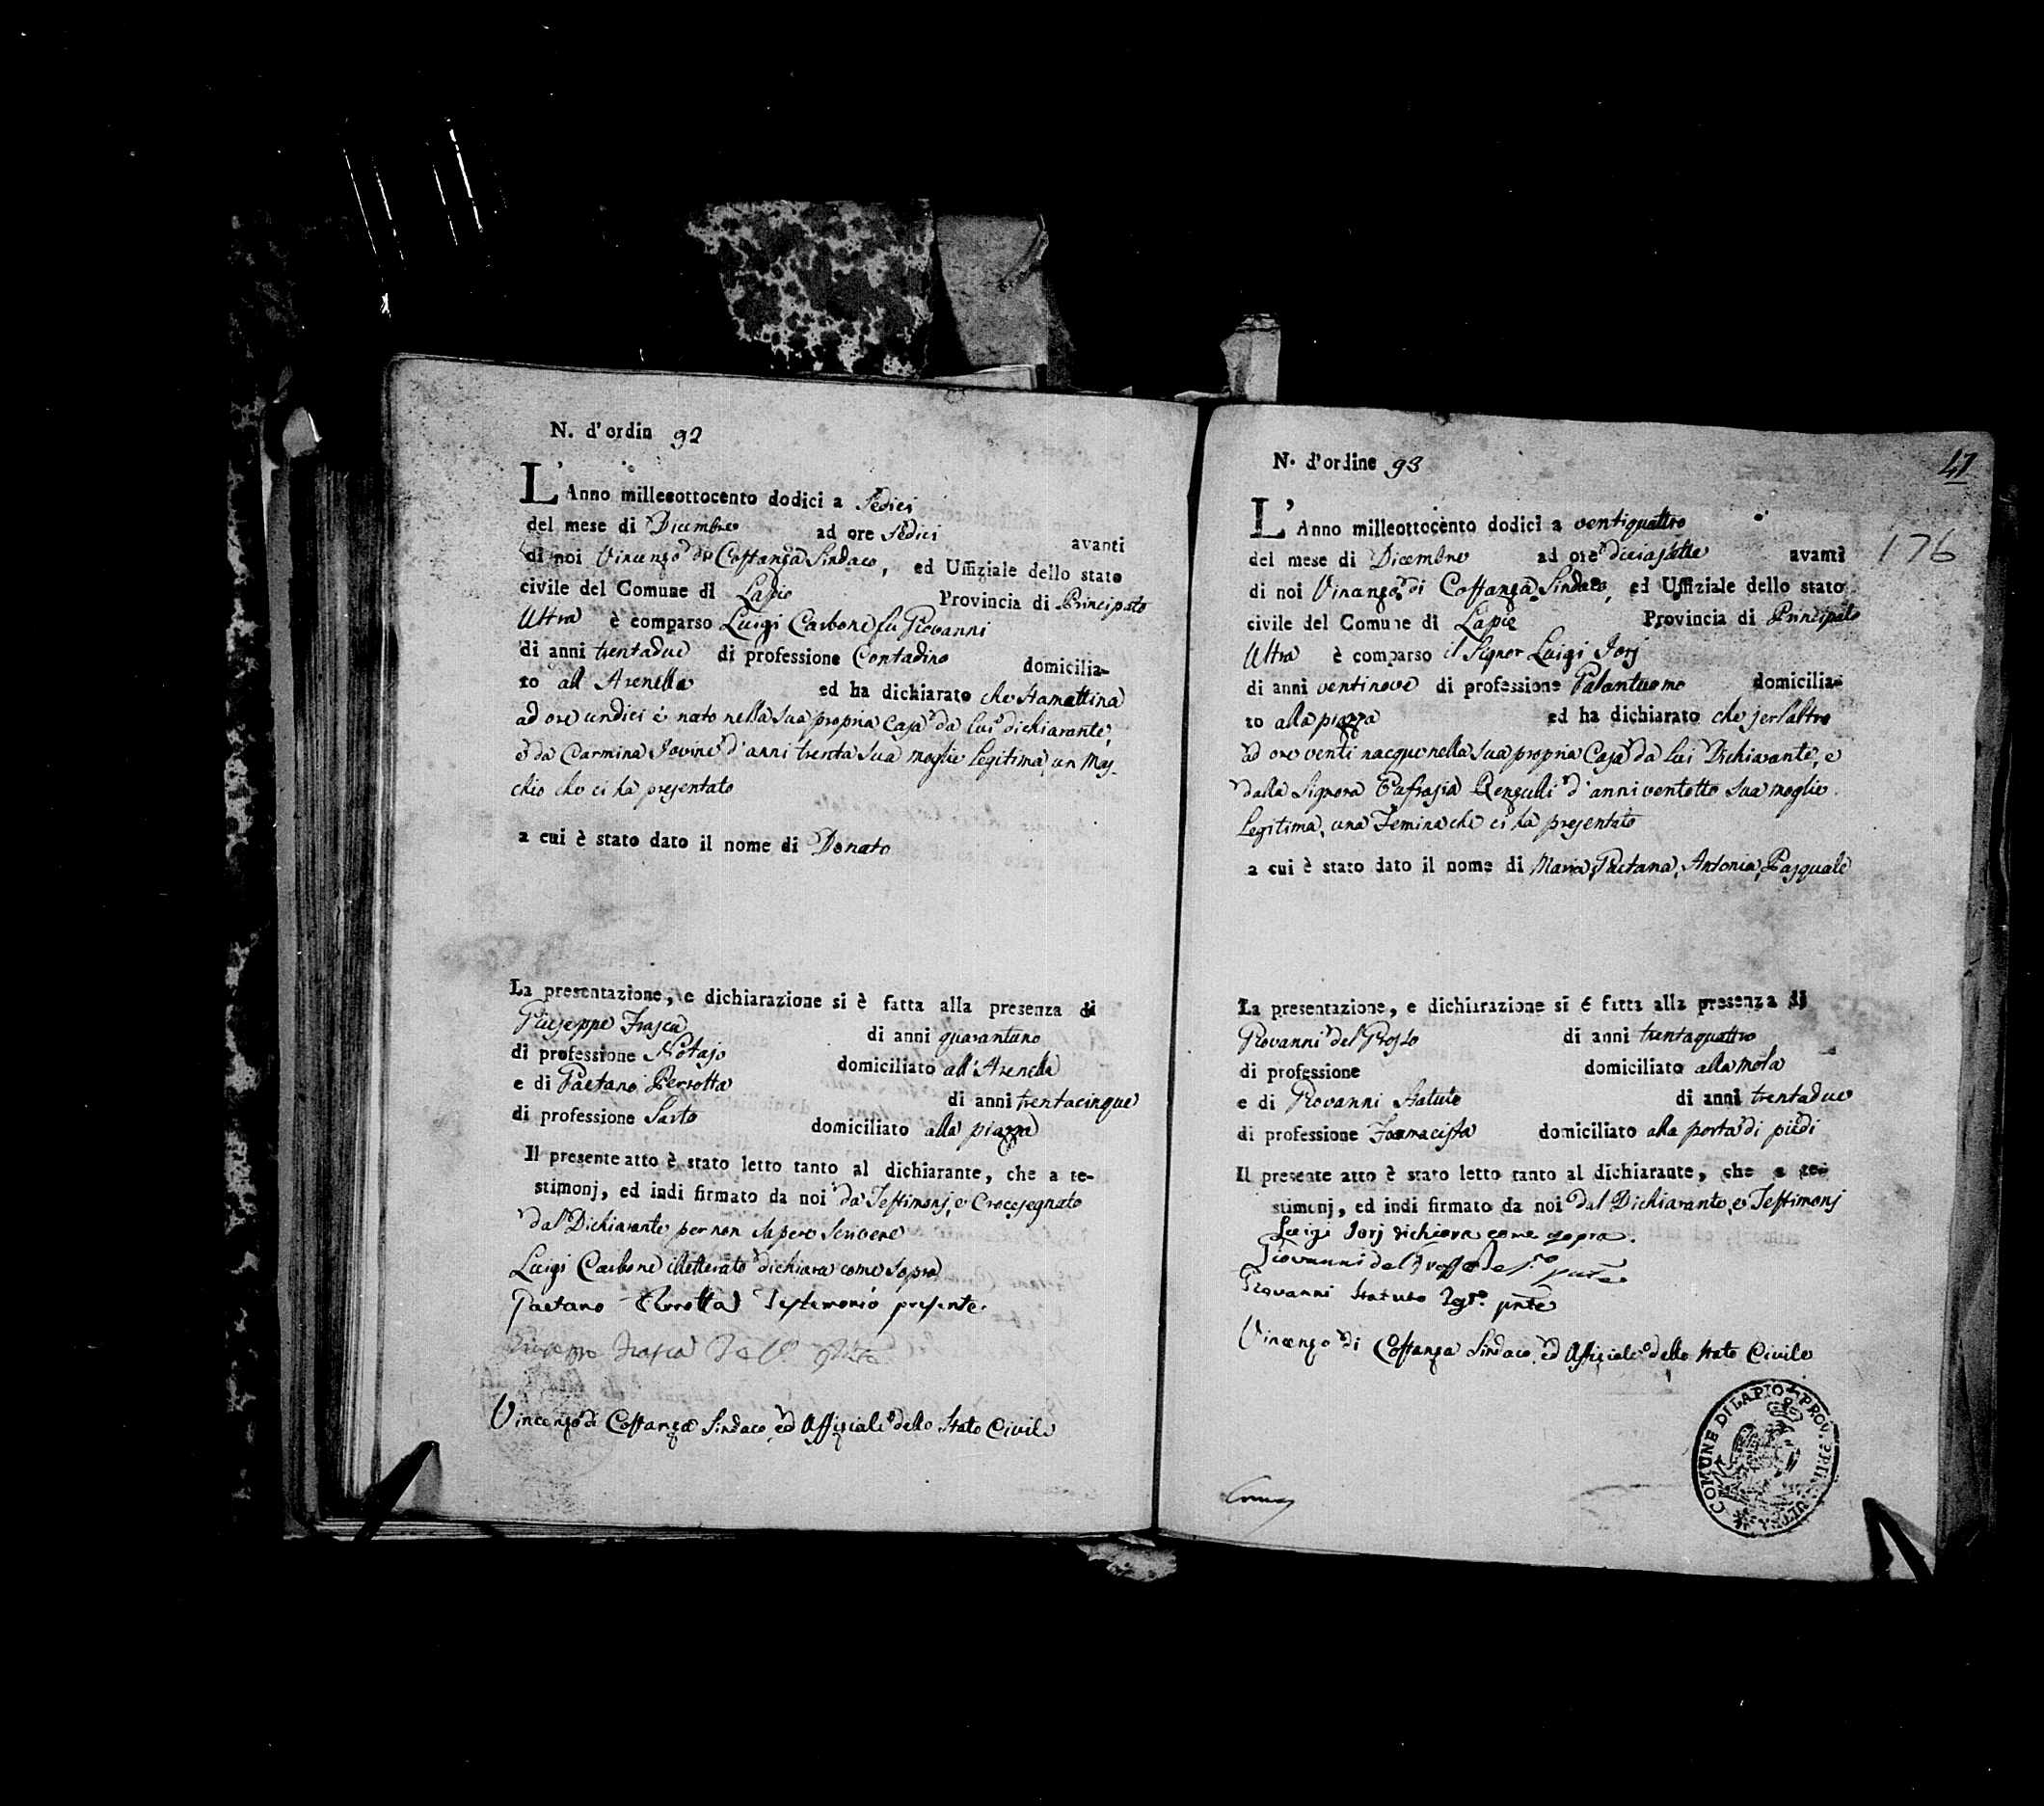 N. d'ordin 92
L'Anno millesottocento dodici a Sedici
del mese di Dicembre ad ore Sedici avanti
di noi Vincenzo di Costanza Sindaco, ed Uffiziale dello stato
civile del Comune di Lapio Provincia di Principato
Ultra è comparso Luigi Carbone fu Giovanni
di anni trentadue di professione Contadino domicilia-
to all'Arenella ed ha dichiarato che stamattina
ad ore undici è nato nella sua propria Casa da lui dichiarante,
e da Carmina Iovine d'anni trenta sua moglie legitima, un Mas-
chio che ci ha presentato
a cui è stato dato il nome di Donato
La presentazione, e dichiarazione si è fatta alla presenza di
Giuseppe Frasca di anni quarantuno
di professione Notajo domiciliato all'Arenella
e di Gaetano Perrotta di anni trentacinque
di professione Sarto domiciliato alla piazza
Il presente atto è stato letto tanto al dichiarante, che a te-
stimonj, ed indi firmato da noi da Testimonj, e Crocesegnato
dal Dichiarante per non sapere scrivere
Luigi Carbone illetterato dichiara come sopra
Gaetano Perrotta Testimonio presente
Giuseppe Frasca
Vincenzo di Costanza Sindaco, ed Uffiziale dello Stato Civile
N. d'ordine 93
47
L'Anno milleottocento dodici a ventiquattro
176
del mese di Dicembre ad ore diciasette avanti
di noi Vincenzo di Costanza Sindaco, ed Uffiziale dello stato
civile del Comune di Lapio Provincia di Principato
Ultra è comparso il Signor Luigi Iorj
di anni ventinove di professione Galantuomo domicilia-
to alla piazza ed ha dichiarato che jersaltro
ad ore venti nacque nella sua propria Casa da lui Dichiarante, e
dalla Signora Eufrasia Renzulli d'anni ventotto sua moglie
legitima, una Femina che ci ha presentato
a cui è stato dato il nome di Maria, Gaetana, Antonia, Pasquale
La presentazione, e dichiarazione si è fatta alla presenza di
Giovanni del Grosso di anni trentaquattro
di professione domiciliato alla mola
e di Giovanni Statuto di anni trentadue
di professione Farmacista domiciliato alla porta di piedi
Il presente atto è stato letto tanto al dichiarante, che a te-
stimonj, ed indi firmato da noi dal Dichiarante, e Testimonj
Luigi Iorj dichiara come sopra.
Giovanni del Grosso
Giovanni Statuto
Vincenzo di Costanza Sindaco, ed Uffiziale dello Stato Civile
COMUNE DI LAPIO PROV. PRIN. ULTRA